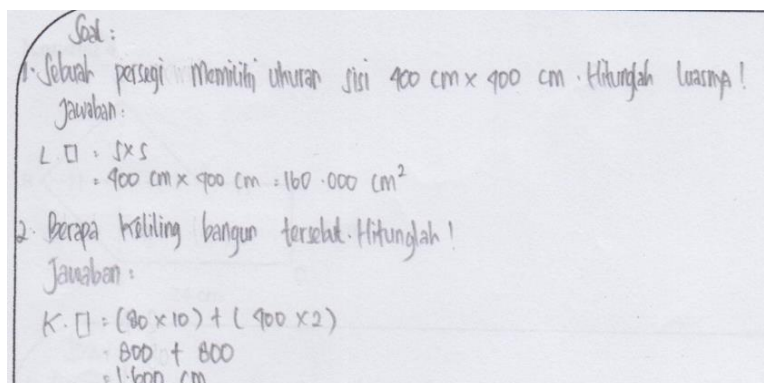 Soal :
1. Sebuah persegi memiliki ukuran sisi 400 cm x 400 cm . Hitunglah luasnya !
Jawaban :
L □ = s x s
= 400 cm x 400 cm = 160.000 cm²
2. Berapa keliling bangun tersebut. Hitunglah !
Jawaban :
K. □ = (80 x 10) + ( 400 x 2)
= 800 + 800
= 1.600 cm